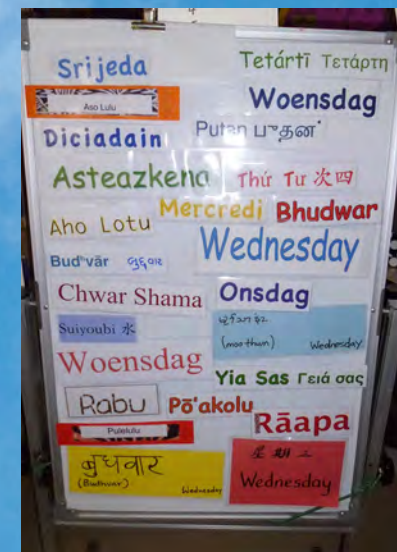 Srijeda
Tetártī Τετάρτη
Aso Lulu
Woensdag
Diciadain
Putan
Asteazkena
Thứ Tư 次四
Mercredi
Bhudwar
Aho Lotu
Wednesday
Budʰvār
Chwar Shama
Onsdag
Suiyoubi 水
Wednesday
Woensdag
Yia Sas Γειά σας
Rabu
Pō'akolu
Rāapa
Pulelulu
बुधवार
(Budhwar)
Wednesday
星期三
Wednesday